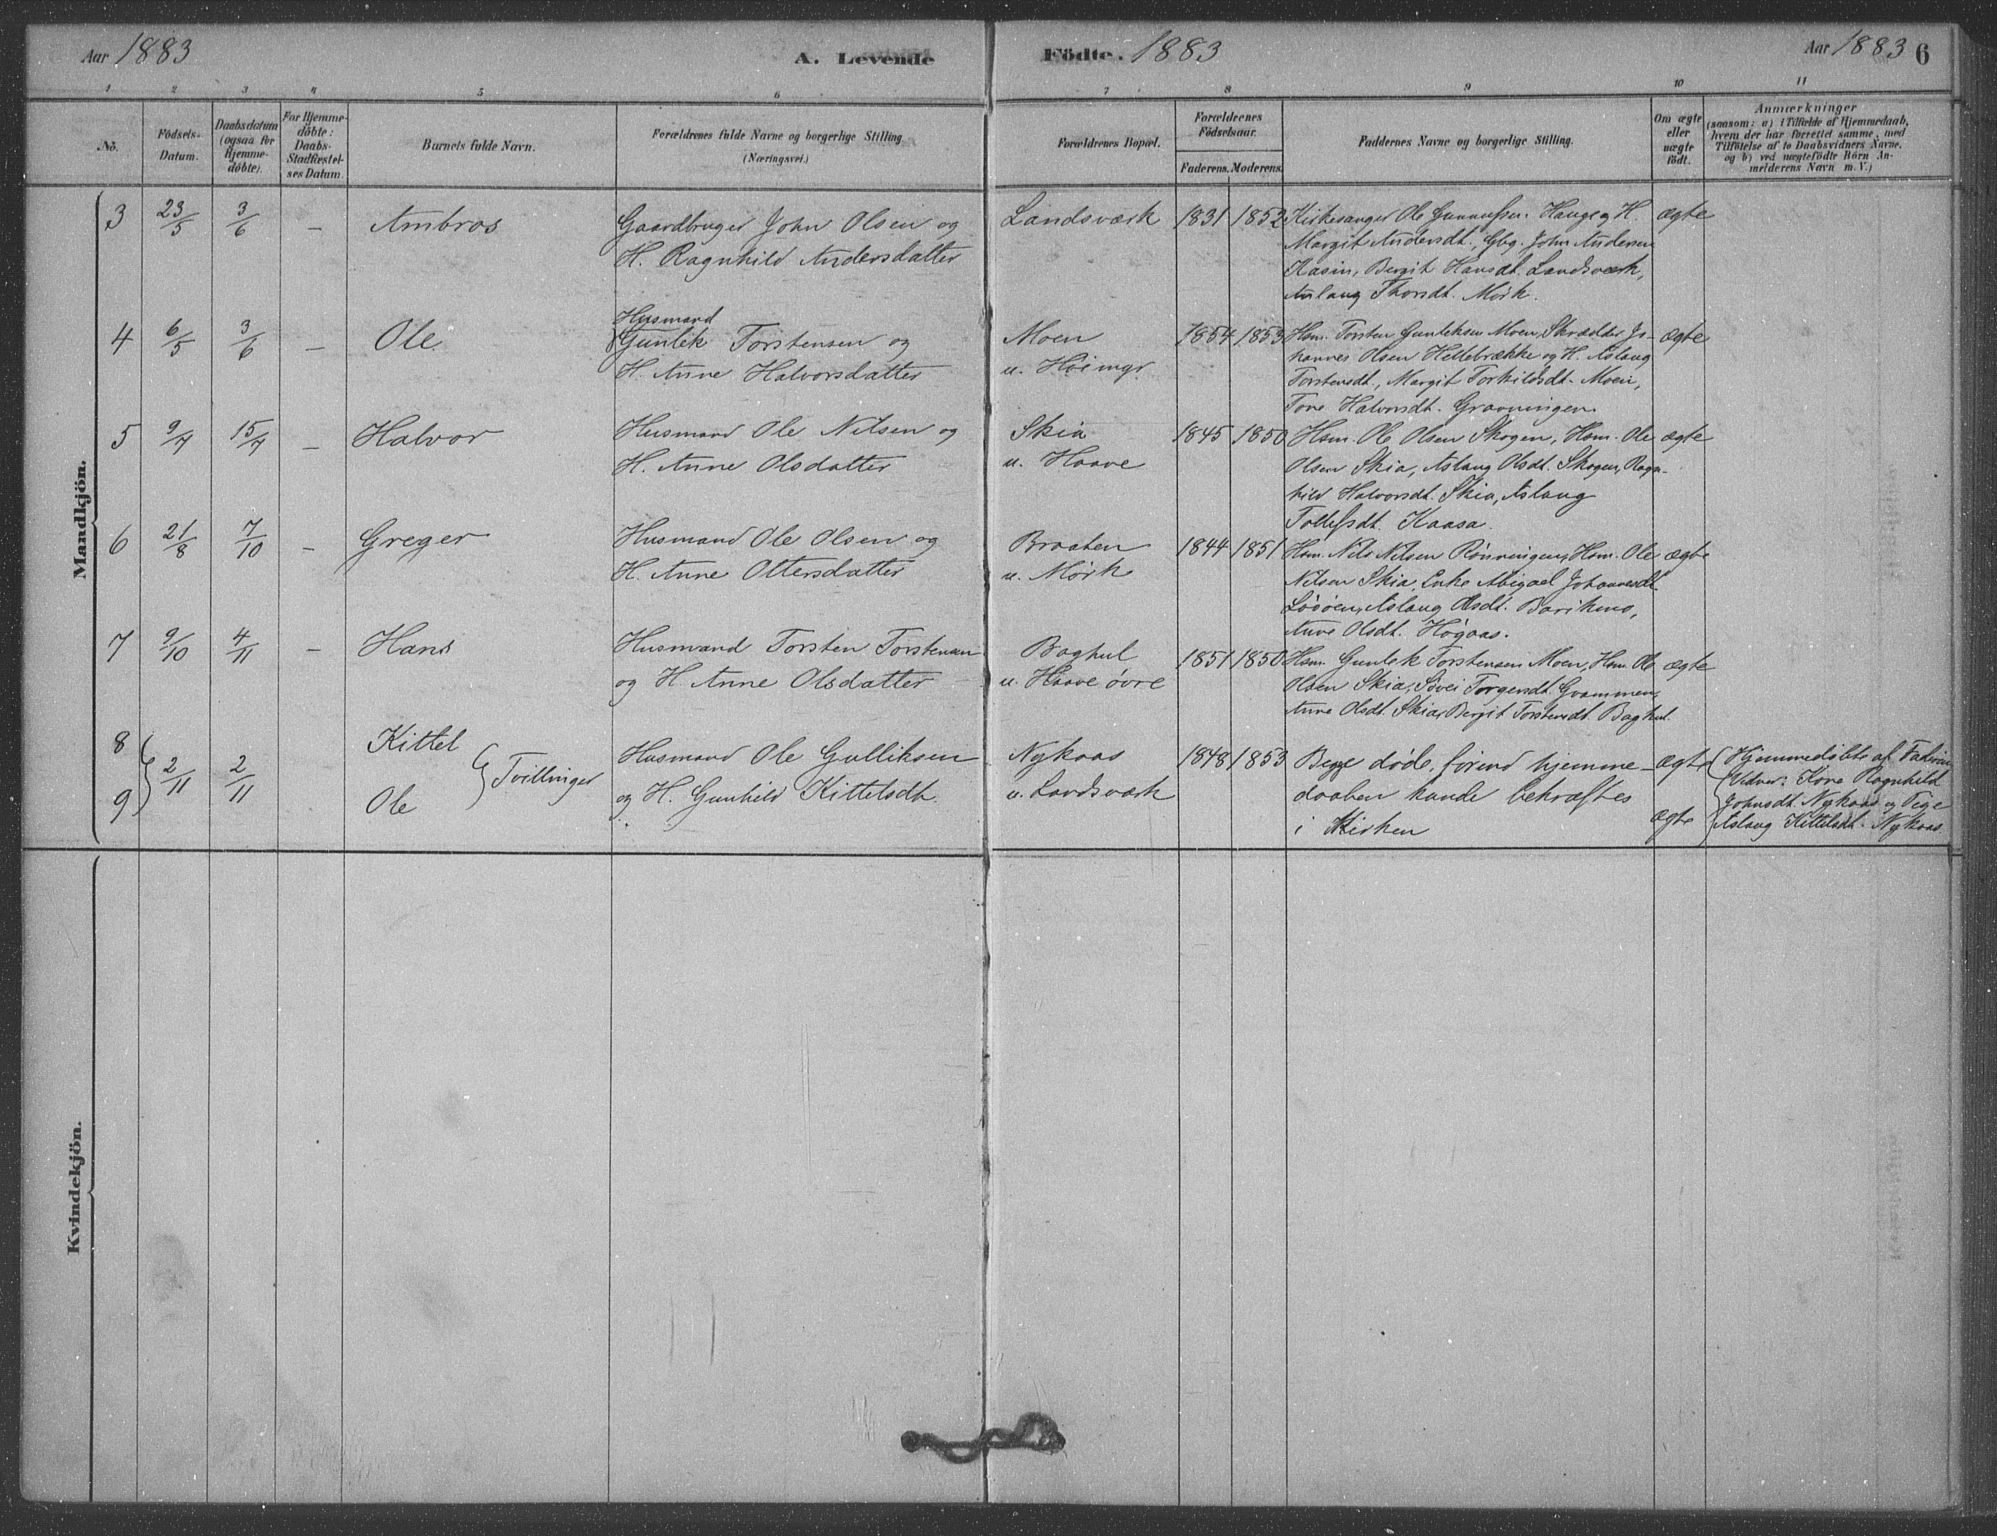 Aar 1883
A. Levende Födte. 1883
Aar 1883 6
1 2 3 4 5 6 7 8 9 10 11
No.
Födsels-Datum.
Daabsdatum (ogsaa for Hjemme-döbte).
For Hjemme-döbte: Daabs-Stadfæstelses Datum.
Barnets fulde Navn.
Forældrenes fulde Navne og borgerlige Stilling. (Næringsvei.)
Forældrenes Bopæl.
Forældrenes Födselsaar.
Faderens. Moderens.
Faddernes Navne og borgerlige Stilling.
Om ægte eller uægte födt.
Anmærkninger
(saasom: a) i Tilfælde af Hjemmedaab,
hvem der har forrettet samme, med
Tilföielse af to Daabsvidners Navne.
og b) ved uægtefödte Börn An-
melderens Navn m. V.)
Mandkjön.
3 23/5 3/6 – Ambros
Gaardbruger John Olsen og
H. Ragnhild Andersdatter
Landsværk 1831 1852
Kirkesanger Ole Gunnufsen Hauge og H.
Margit Andersdt., Gbg. John Andersen
Kasin, Bergit Hansdt. Landsværk,
Aslaug Thorsdt. Mørk.
ægte
4 6/5 3/6 – Ole
Husmand
Gunlek Torstensen og
H. Anne Halvorsdatter
Moen
u. Høimyr
1854 1853
Hsm. Torsten Gunleksen Moen, Skrædder Jo-
hannes Olsen Hellebrække og H. Aslaug
Torstensdt., Margit Torkildsdt. Moen,
Tone Halvorsdt. Gravningen.
ægte
5 9/7 15/7 – Halvor
Husmand Ole Nilsen og
H. Anne Olsdatter
Skia
u. Haave
1845 1850
Hsm. Ole Olsen Skogen, Hsm. Ole
Olsen Skia, Aslaug Olsdt. Skogen, Ragn-
hild Halvorsdt. Skia, Aslaug
Tollefsdt. Kaasa.
ægte
6 21/8 7/10 – Greger
Husmand Ole Olsen og
H. Anne Ottersdatter
Braaten
u. Mørk
1844 1851
Hsm. Nils Nilsen Rønningen, Hsm. Ole
Nilsen Skia, Enke Abigael Johannesdt.
Løsøen, Aslaug Olsdt. Barikmo,
Anne Olsdt. Høgaas.
ægte
7 9/10 4/11 – Hans
Husmand Torsten Torstensen
og H. Anne Olsdatter
Baghul
u. Haave øvre
1851 1850
Hsm. Gunlek Torstensen Moen, Hsm. Ole
Olsen Skia, Søvei Torgersdt. Grammen,
Anne Olsdt. Skia, Bergit Torstensdt. Baghul.
ægte
8 Kittel
9 2/11 2/11 Ole
Tvillinger
Husmand Ole Gulliksen
og H. Gunhild Kittelsdt.
Nykaas
u. Landsværk
1848 1853
Begge døde, førend hjemme-
daaben kunde bekræftes
i Kirken
ægte
ægte
Hjemmedøbte af Faderen
Vidner: Kone Ragnhild
Johnsdt. Nykaas og Pige
Aslaug Kittelsdt. Nykaas.
Kvindekjön.